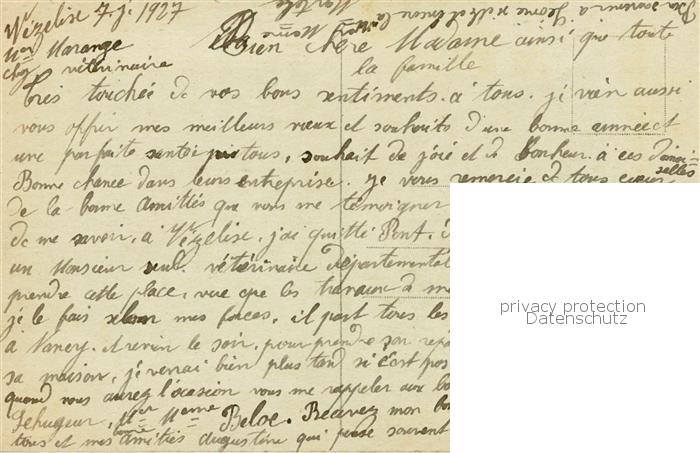 Vézelise 7. j. 1927
Mr Marange
chez vétérinaire
Bien chère Madame ainsi que toute
la famille
très touchée de vos bons sentiments. à tous. je vien aussi
vous offrir mes meilleurs vœux et souhaits d'une bonne année et
une parfaite santé tous, souhait de joie et de bonheur. à ces demoi-
selles
Bonne chance dans leurs entreprise. je vous remercie de tous cœur
de la bonne amitiés que vous me témoigner
de me savoir, à Vézelise, j'ai quitté Pont.
un Monsieur seul. vétérinaire départemental
prendre cette place, vue que les travaux à
je le fais selon mes forces, il part tous les
a Nancy. revien le soir, pour prendre son
sa maison, je verrai bien plus tard si c'est pas
quand vous aurez l'ocasion vous me rappeler aux
Mr Mme Beloe. Recevez mon
tous et mes amitiés d'augustine qui pense souvent
privacy protection
Datenschutz